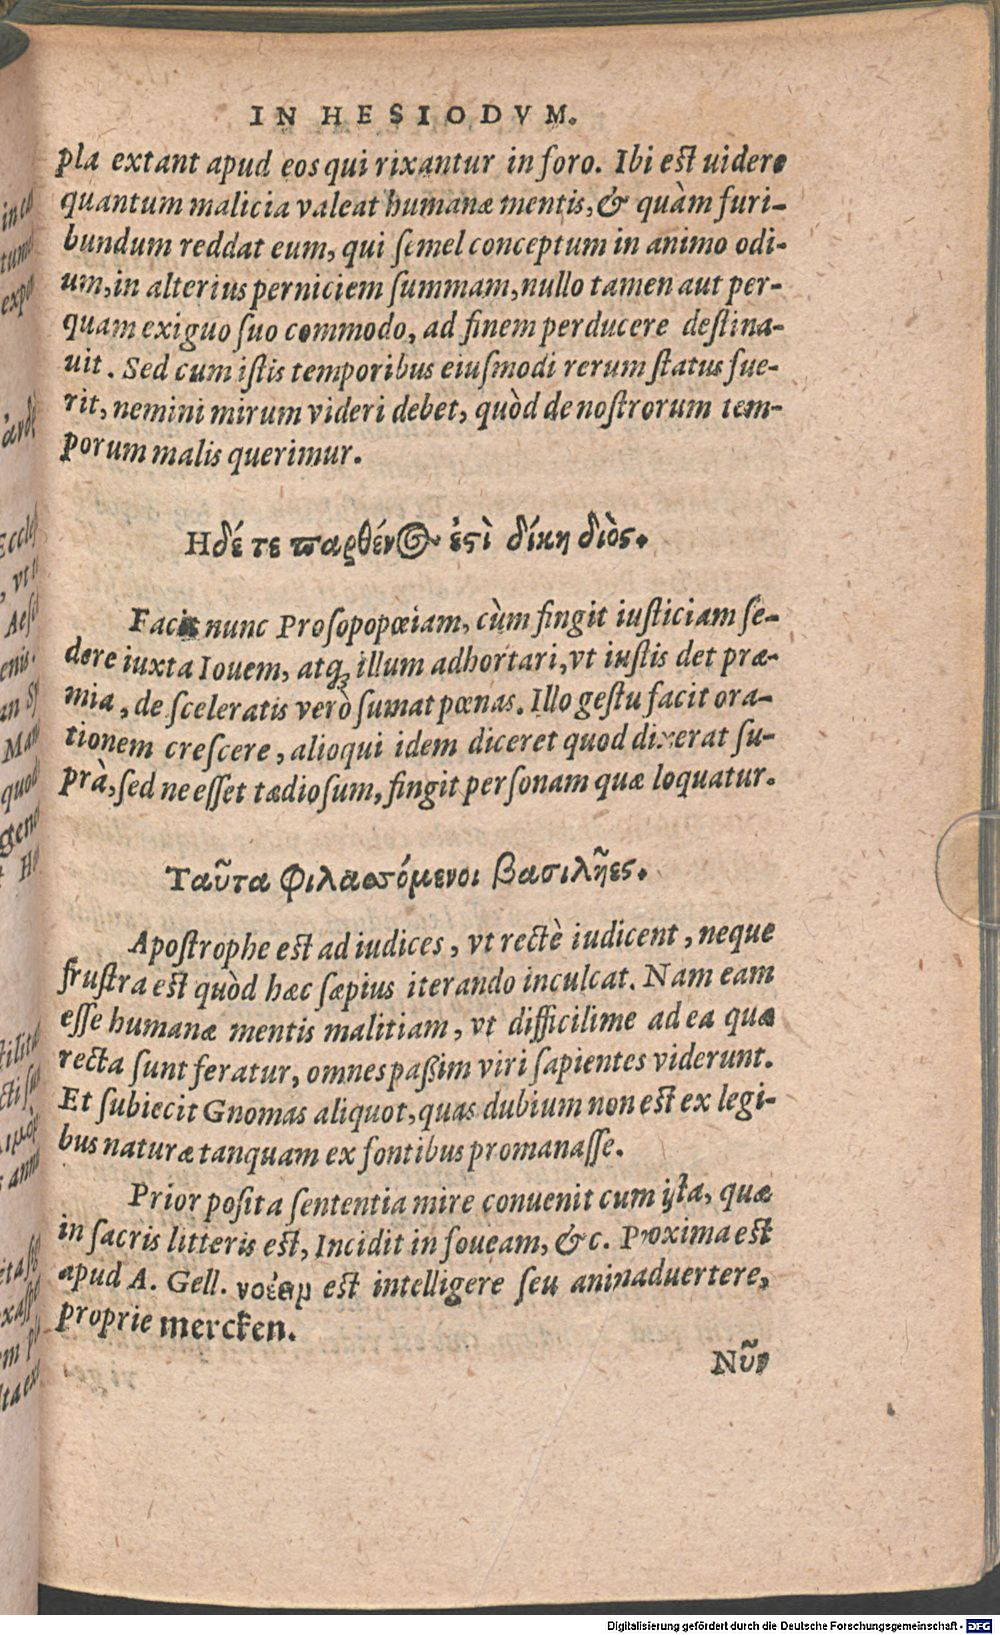 IN HESIODVM.
pla extant apud eos qui rixantur in foro. Ibi est uidere
quantum malicia valeat humanæ mentis, & quàm furi-
bundum reddat eum, qui semel conceptum in animo odi-
um, in alterius perniciem summam, nullo tamen aut per-
quam exiguo suo commodo, ad finem perducere destina-
uit. Sed cum istis temporibus eiusmodi rerum status fue-
rit, nemini mirum videri debet, quòd de nostrorum tem-
porum malis querimur.
Ηδέ τε παρθένος ἐστὶ δίκη διὸς.
Facit nunc Prosopopœiam, cùm fingit iusticiam se-
dere iuxta Iouem, atq; illum adhortari, vt iustis det præ-
mia, de sceleratis verò sumat pœnas. Illo gestu facit ora-
tionem crescere, alioqui idem diceret quod dixerat su-
prà, sed ne esset tædiosum, fingit personam quæ loquatur.
Ταῦτα φιλαστόμενοι βασιλῆες.
Apostrophe est ad iudices, vt rectè iudicent, neque
frustra est quòd hæc sæpius iterando inculcat. Nam eam
esse humanæ mentis malitiam, vt difficilime ad ea quæ
recta sunt feratur, omnes paßim viri sapientes viderunt.
Et subiecit Gnomas aliquot, quas dubium non est ex legi-
bus naturæ tanquam ex fontibus promanasse.
Prior posita sententia mire conuenit cum ista, quæ
in sacris litteris est, Incidit in foueam, &c. Proxima est
apud A. Gell. est intelligere seu aninaduertere,
proprie mercken.
Νῦν
Digitalisierung gefördert durch die Deutsche Forschungsgemeinschaft - DFG